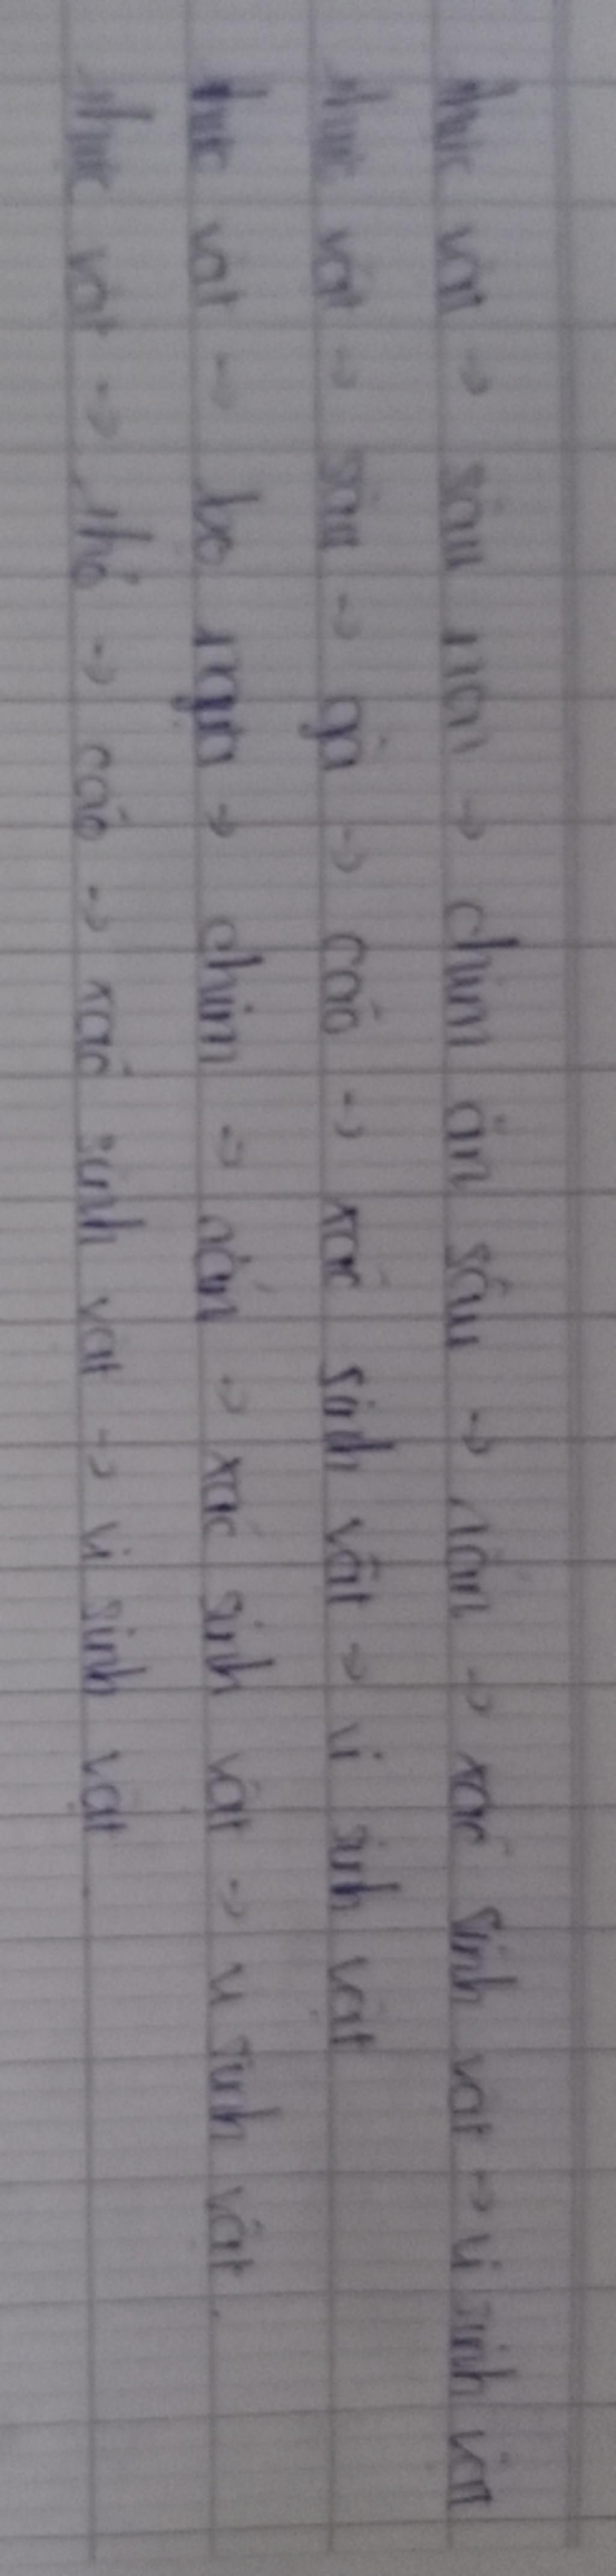 thực vật -> sâu non -> chim ăn sâu -> rắn -> xác sinh vật -> vi sinh vật
thực vật -> sâu -> gà -> cáo -> xác sinh vật -> vi sinh vật
thực vật -> bọ ngựa -> chim -> rắn -> xác sinh vật -> vi sinh vật.
thực vật -> thỏ -> cáo -> xác sinh vật -> vi sinh vật.